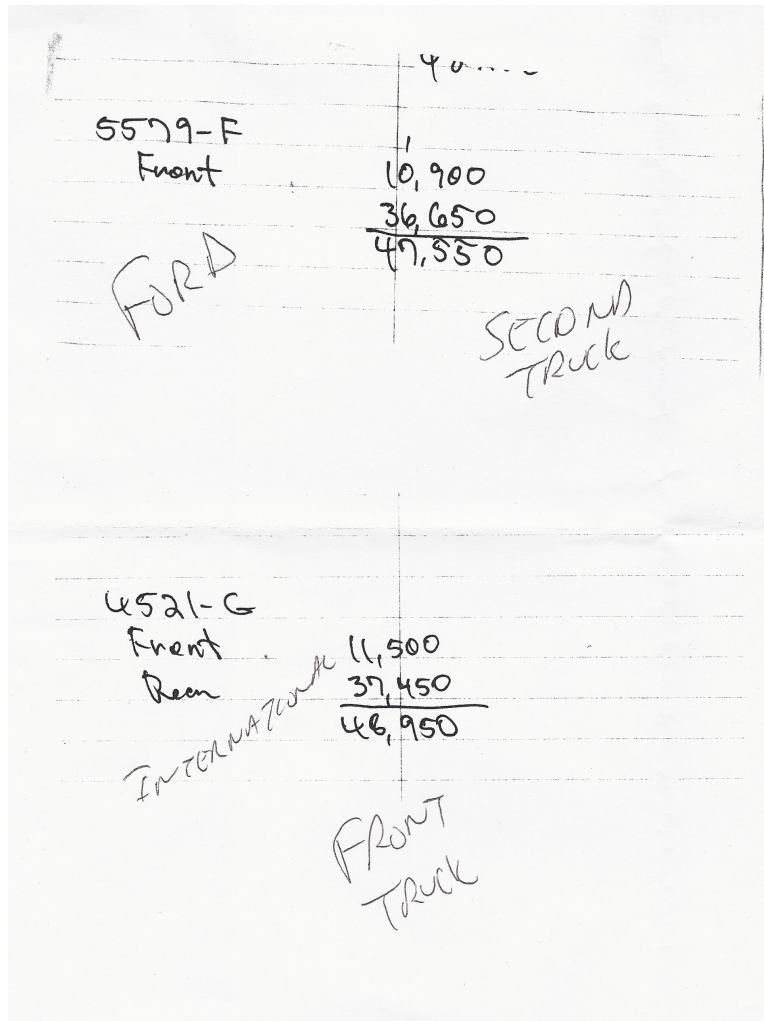 5579-F
Front
1
10,900
36,650
47,550
FORD
SECOND
TRUCK
4521-G
Front 11,500
Rear 37,450
48,950
INTERNATIONAL
FRONT
TRUCK